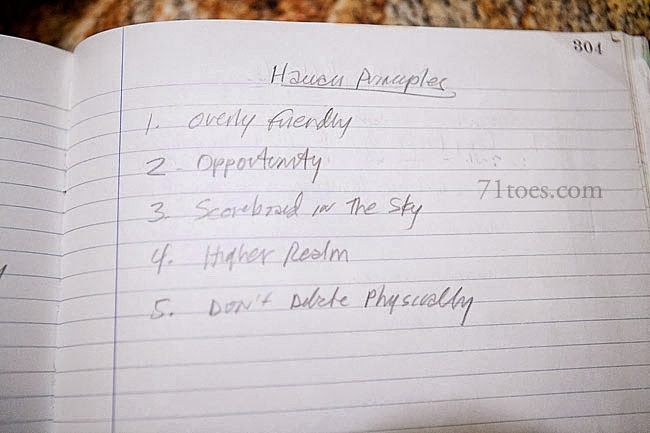 304
Hawaii Principles
1. Overly Friendly
2. Opportunity
3. Scoreboard in The Sky
4. Higher Realm
5. DON't Debate Physically
71toes.com